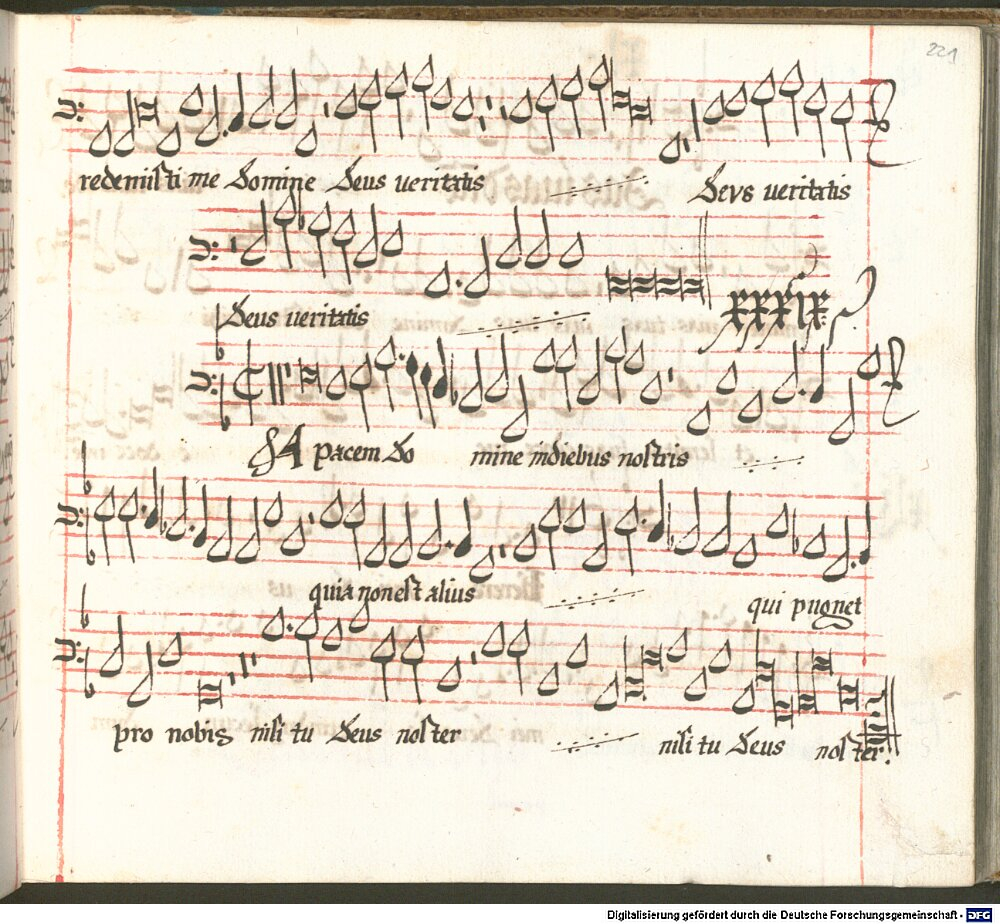 221
redemisti me Domine Deus veritatis Devs veritatis
Deus veritatis
xxxix
DA pacem Do mine indiebus nostris
quia non est alius qui pugnet
pro nobis nisi tu Deus noster nisi tu Deus noster.
Digitalisierung gefördert durch die Deutsche Forschungsgemeinschaft - DFG